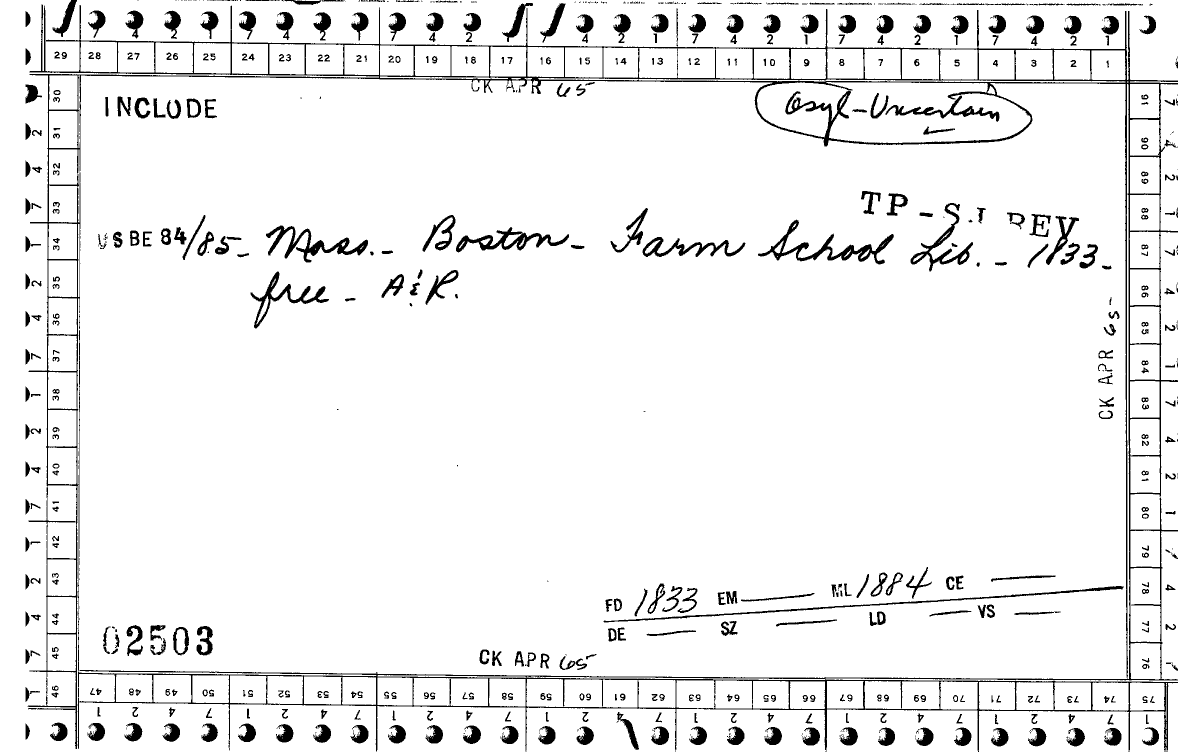 7 4 2 7 4 2 1 7 4 2 1 7 4 2 1 7 4 2 1 7 4 2 1 7 4 2 1
29 28 27 26 25 24 23 22 21 20 19 18 17 16 15 14 13 12 11 10 9 8 7 6 5 4 3 2 1
CK APR 65
INCLUDE
Asyl-Uncertain
TP-SJ REV
USBE 84/85- Mass.- Boston- Farm School Lib. - 1833-
free - A & R.
CK APR 65
FD 1833 EM ML 1884 CE
DE SZ LD VS
02503
CK APR 65
30 31 32 33 34 35 36 37 38 39 40 41 42 43 44 45 46
91 90 89 88 87 86 85 84 83 82 81 80 79 78 77 76 75
47 48 49 50 51 52 53 54 55 56 57 58 59 60 61 62 63 64 65 66 67 68 69 70 71 72 73 74
1 2 4 7 1 2 4 7 1 2 4 7 1 2 4 7 1 2 4 7 1 2 4 7 1 2 4 7